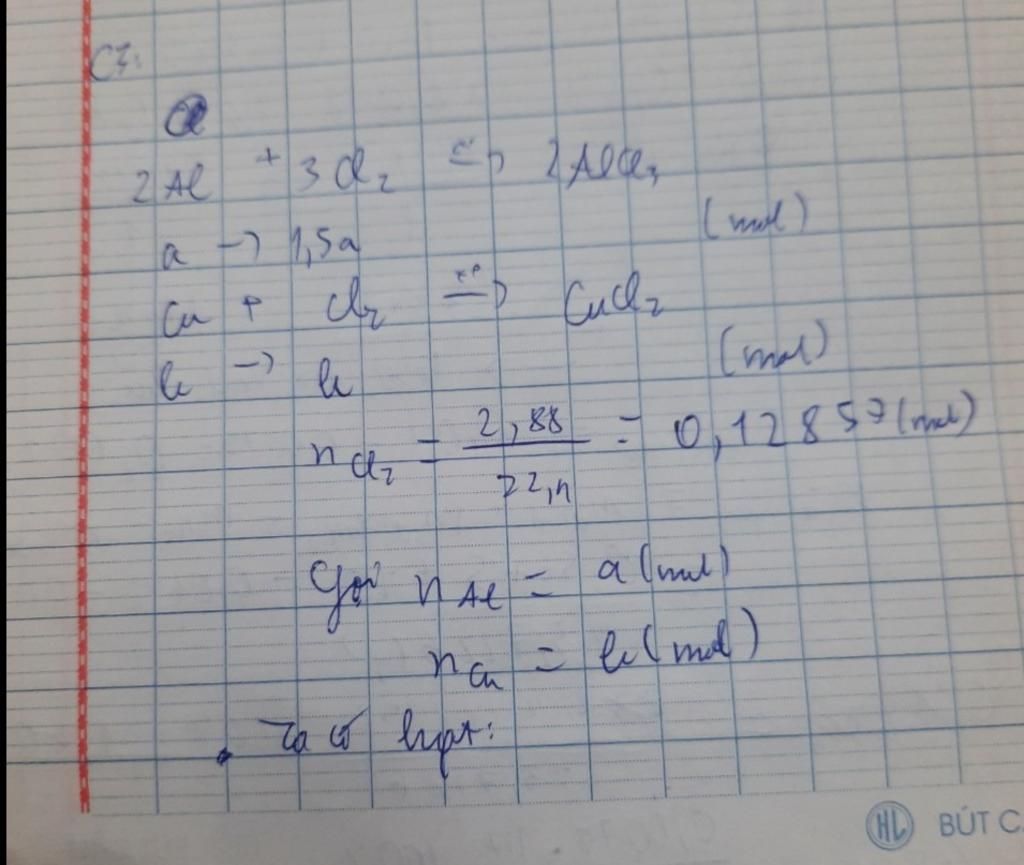 C3:
2Al + 3Cl₂ t° => 2AlCl₃
a -> 1,5a (mol)
Cu + Cl₂ t° => CuCl₂
b -> b (mol)
n Cl₂ = 2,88 / 22,4 = 0,12857 (mol)
Gọi n Al = a (mol)
n Cu = b (mol)
Ta có hpt:
HL BÚT C